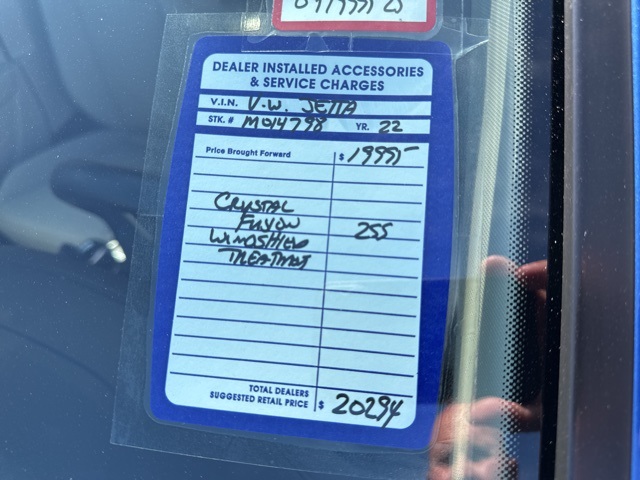 DEALER INSTALLED ACCESSORIES
& SERVICE CHARGES
V.I.N. V.W. JETTA
STK. # M014798 YR. 22
Price Brought Forward $ 19995-
CRYSTAL
FUSION 255
WINDSHIELD
TREATMENT
TOTAL DEALERS
SUGGESTED RETAIL PRICE $ 20294